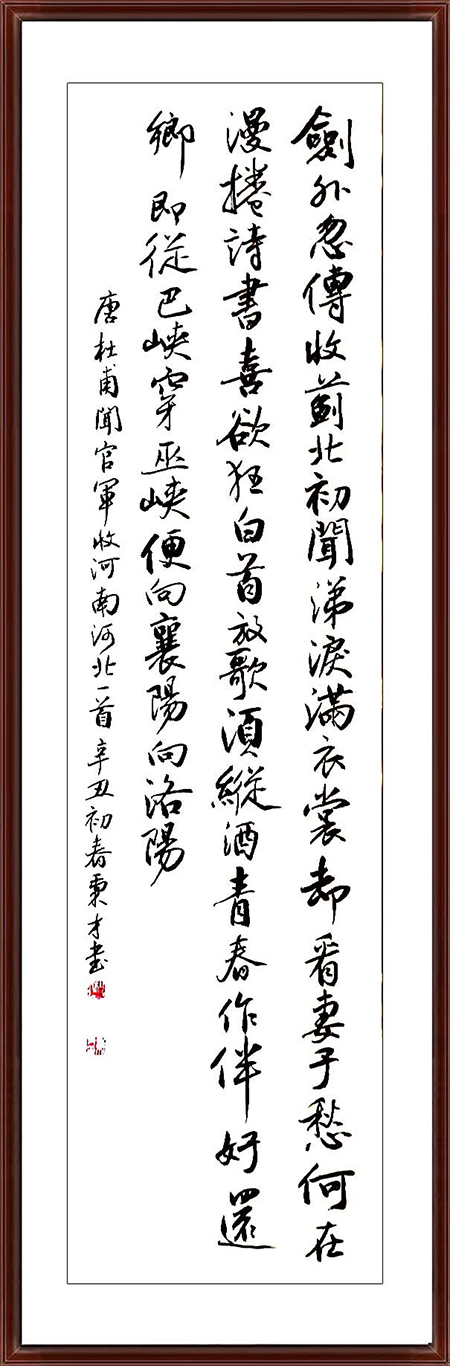 劍外忽傳收薊北初聞涕淚滿衣裳却看妻子愁何在
漫捲詩書喜欲狂白首放歌須縱酒青春作伴好還
鄉即從巴峽穿巫峽便向襄陽向洛陽
唐杜甫聞官軍收河南河北一首辛丑初春秉才書